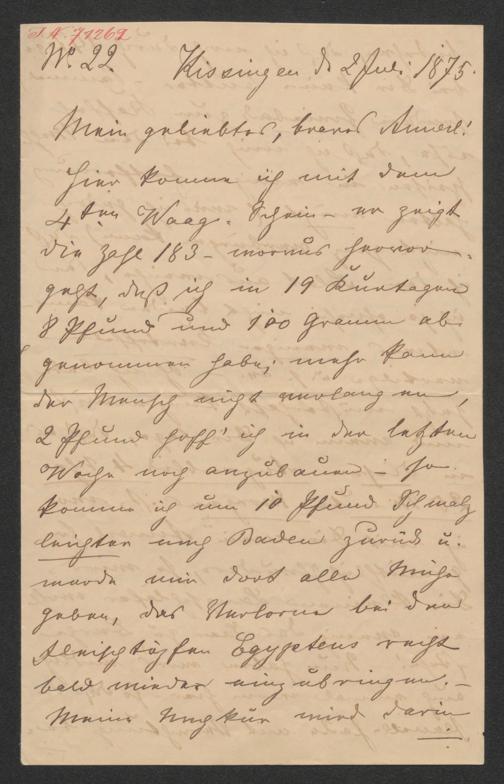 I.N. 71269
No. 22. Kissingen d. 2 Juli 1875.
Mein geliebtes, braves Amerl!
Hier komme ich mit dem
4ten Waag-Schein – er zeigt
die Zahl 183 – woraus hervor-
geht, daß ich in 19 Kurtagen
8 Pfund und 100 Gramm ab-
genommen habe; mehr kann
der Mensch nicht verlangen,
2 Pfund hoff' ich in der letzten
Woche noch anzubauen – so
komme ich um 10 Pfund Schmalz
leichter nach Baden zurück u.
werde mir dort alle Mühe
geben, das Verlorne bei den
Fleischtöpfen Egyptens recht
bald wieder einzubringen. –
Meine Nachkur wird darin